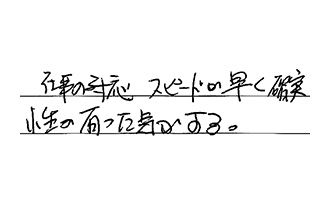 仕事の対応 スピードが早く確実
性の有った気がする。